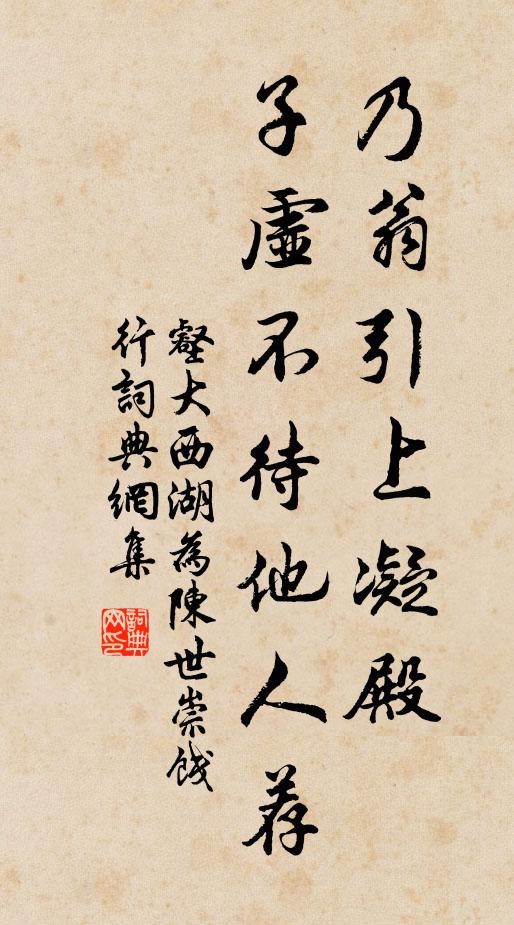 乃翁引上凝殿
子虛不待他人荐
壑大西湖為陳世崇餞
行詞典網集
詞典
网印